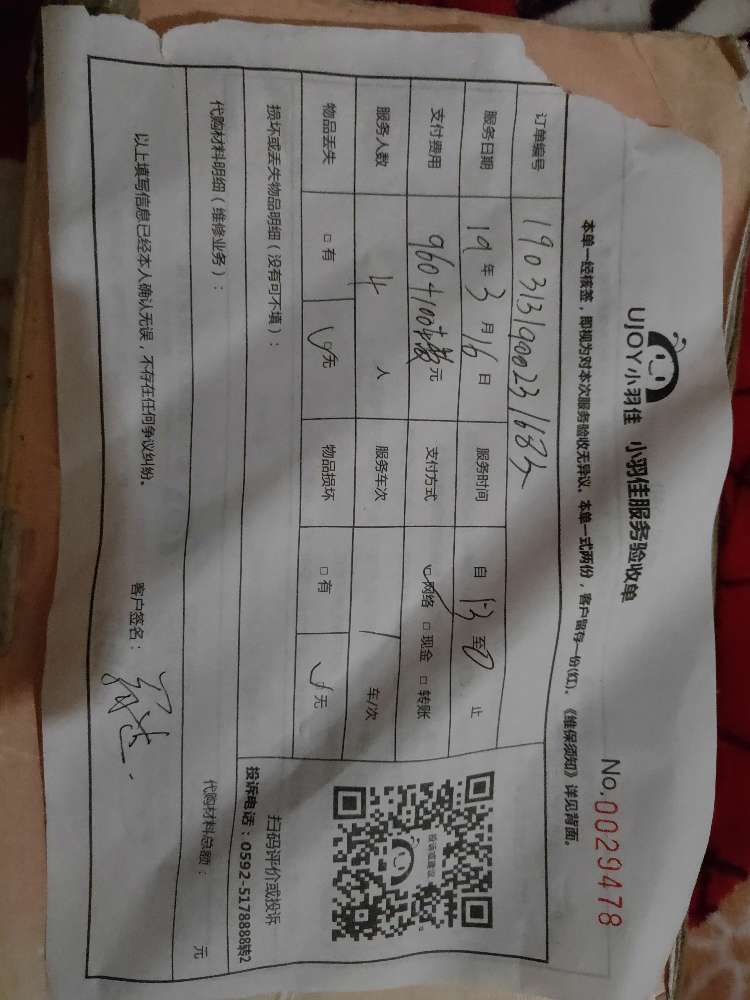 UJOY小羽佳 小羽佳服务验收单
No.0029478
本单一经核签，即视为对本次服务验收无异议。本单一式两份，客户留存一份(红)、《维保须知》详见背面。
订单编号
服务日期 19年3月16日 服务时间 自13至 止
支付费用 960+100 元 支付方式 网络 □现金 □转账
服务人数 4人 服务车次 1 车/次
物品丢失 □有 无 物品损坏 □有 无
损坏或丢失物品明细（没有可不填）：
代购材料明细（维修业务）： 代购材料总额： 元
以上填写信息已经本人确认无误，不存在任何争议纠纷。 客户签名：
投诉或建议
扫码评价或投诉
投诉电话：0592-5178888转2